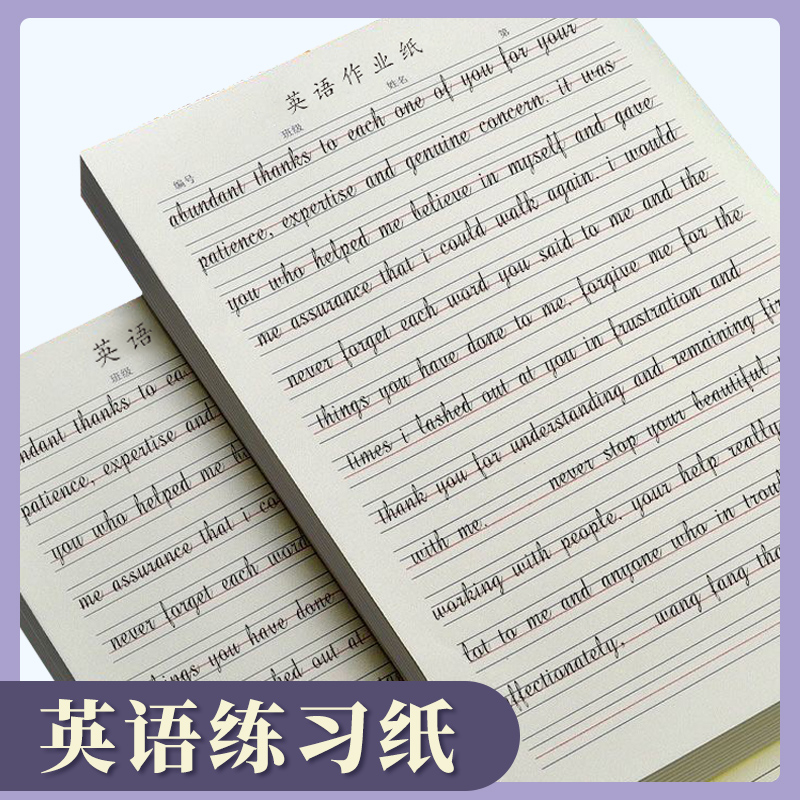 英语作业纸
编号 班级 姓名 第
abundant thanks to each one of you for your
patience, expertise and genuine concern. it was
you who helped me believe in myself and gave
me assurance that i could walk again. i would
never forget each word you said to me and the
things you have done to me. forgive me for the
times i lashed out at you in frustration and
thank you for understanding and remaining fir
with me. never stop your beautiful
working with people. your help really
lot to me and anyone who in troub
ffectionately, wang fang tha
英语
班级
ndant thanks to ea
patience, expertise and
you who helped me
me assurance that i co
never forget each word
ings you have done
shed out at
英语练习纸